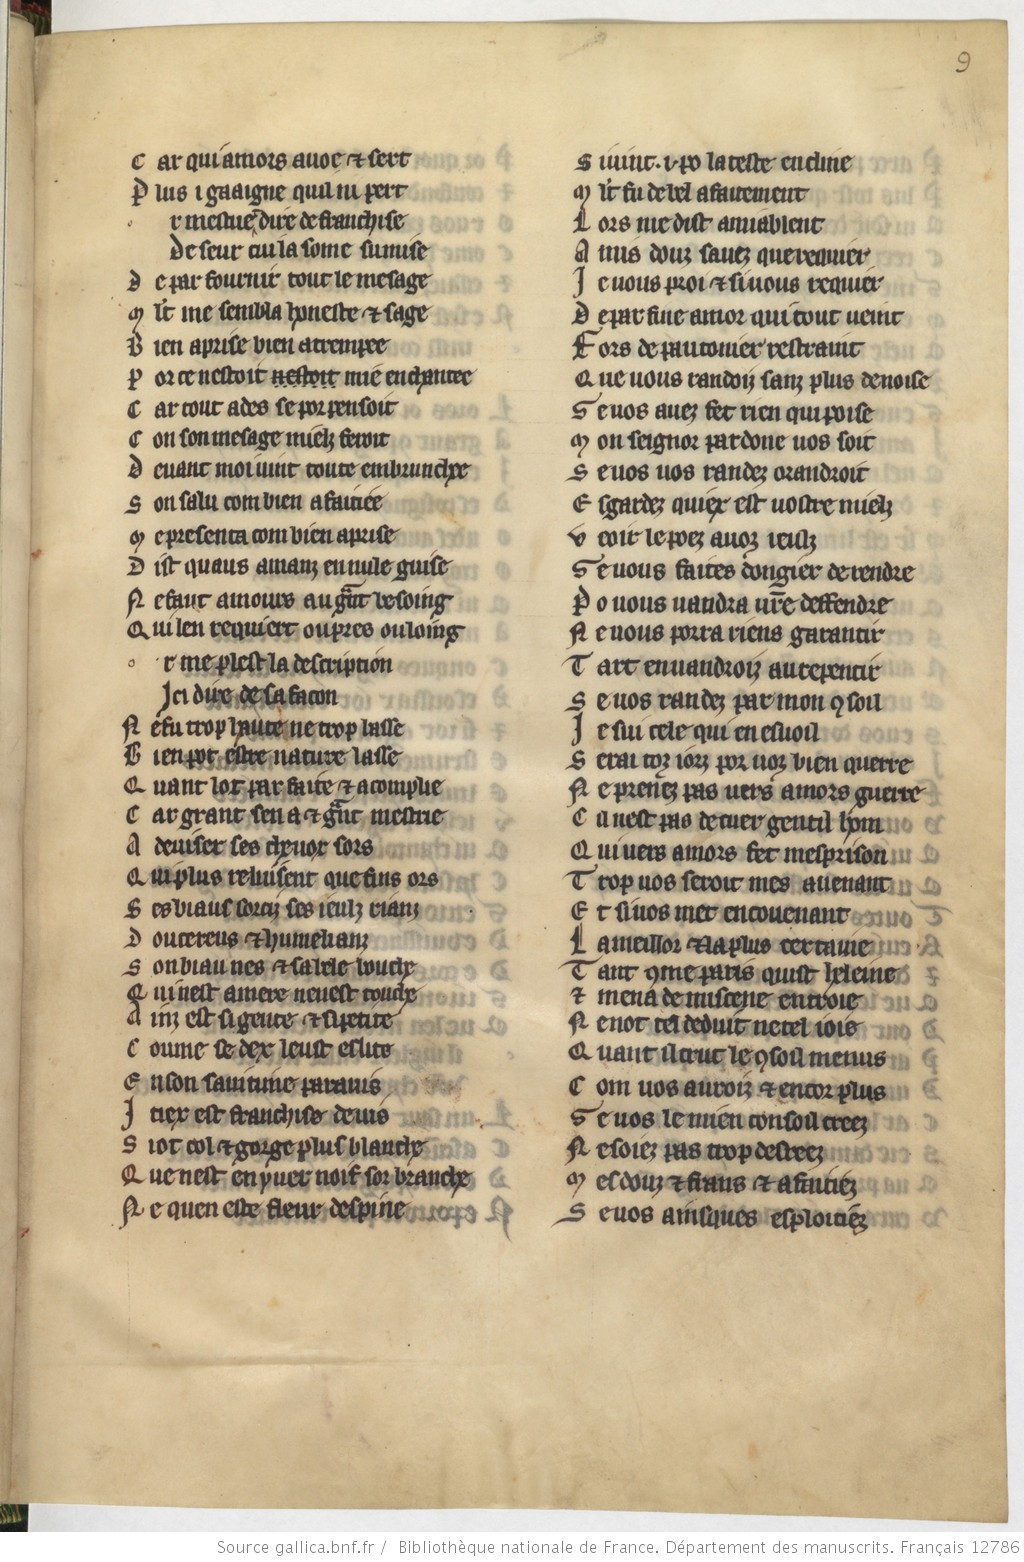 9
C ar qui amors auoe ⁊ sert
P lus i gaaigne quil ni pert
o r mestue dire de franchise
De seur cui la some su mise
D e par fournir tout le mesage
M lt me sembla honeste ⁊ sage
B ien aprise bien atrempee
P or ce nestoit nestoit mie enchantee
C ar tout ades se porpensoit
C on son mesage mielz feroit
D euant moi uint toute embrunche
S on salu com bien afaitiee
M e presenta com bien aprise
D ist quaus amanz en nule guise
N e faut amours au gnt besoing
Q ui len requiert ou pres ou loing
o r me plest la description
Ici dire de sa facon
N e fu trop haute ne trop basse
B ien pot estre nature lasse
Q uant lot parfaite ⁊ acomplie
C ar grant sen a ⁊ gnt mestrie
A deuiser ses cheuox sors
Q ui plus reluisent que fins ors
S es biaus sorciz ses ieulz rianz
D oucereus ⁊ humelianz
S on biau nes ⁊ sa bele bouche
Q ui nest amere ne nest touche
A inz est si gente ⁊ si petite
C oume se dex leust eslite
E n son sauitime parauis
I tiex est franchise de uis
S i ot col ⁊ gorge plus blanche
Q ue nest en yuer noif sor branche
N e quen este fleur despine
S i uint .i. po la teste encline
M lt fu de bel afaitement
L ors me dist amiablent
A mis douz sauez que requier
I e uous proi ⁊ si uous requier
D e par fine amor qui tout ueint
F ors de pautonier restraint
Q ue uous randoiz sanz plus de noise
S e uos auez fet rien qui poise
M on seignor pardone uos soit
S e uos uos randez orandroit
E sgardez quiex est uostre mielz
V eoir le poez auoz ieulz
S e uous faites dongier de rendre
P o uous uandra ure deffendre
N e uous porra riens garantir
T art en uandroiz au repentir
S e uos randez par mon ꝯsoil
I e sui cele qui en esuoil
S erai toz iorz por uoz bien querre
N e prenez pas uers amors guerre
C il nest pas de cuer gentil hom
Q ui uers amors fet mesprison
T rop uos seroit mes auenant
E t si uos met encouenant
L a meillor ⁊ la plus certaine
T ant ꝯme paris quist heleine
⁊ mena de miscene en troie
N enot tel deduit ne tel ioie
Q uant il crut le ꝯsoil menus
C om uos auroiz ⁊ encor plus
S e uos le mien consoil creez
N e soiez pas trop destreez
M es douz ⁊ frans ⁊ afaitiez
S e uos ainsques esploitiez
Source gallica.bnf.fr / Bibliothèque nationale de France. Département des manuscrits. Français 12786